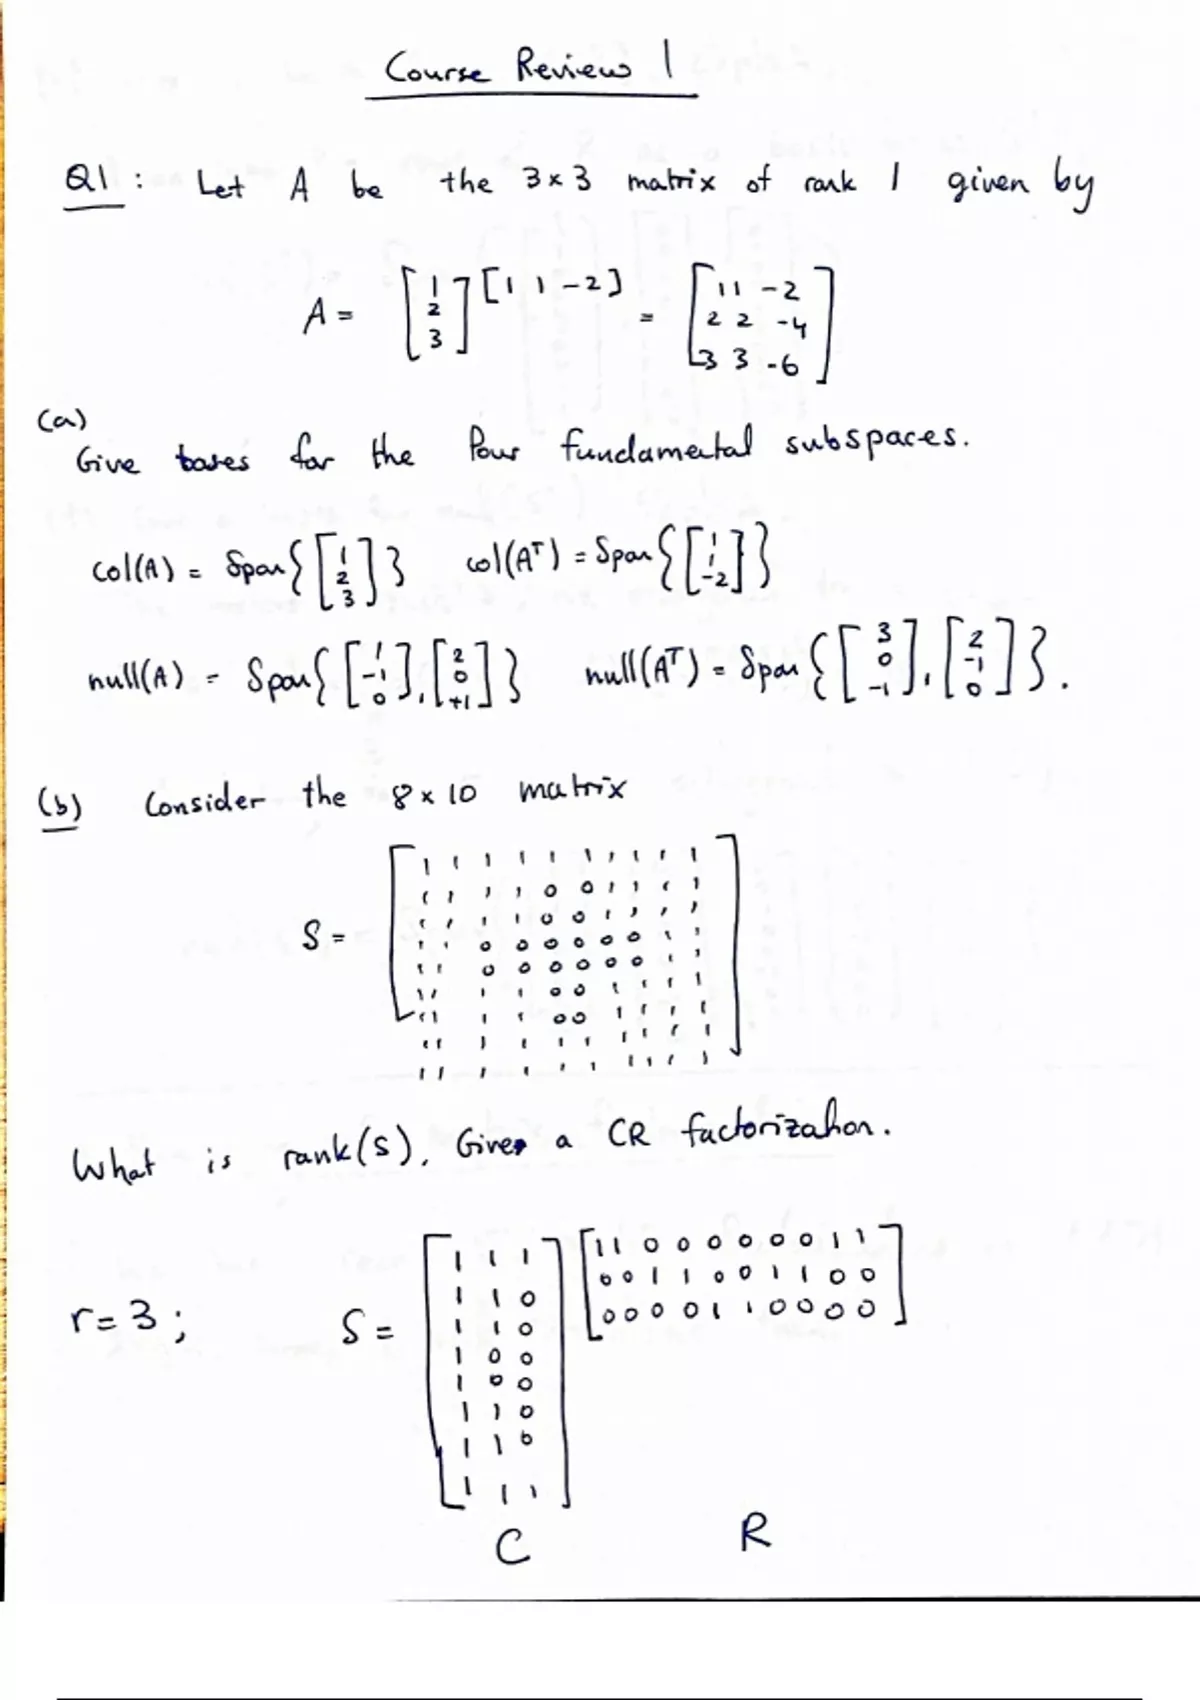 Course Review 1
Q1: Let A be the 3×3 matrix of rank 1 given by
A = [1 2 3] [1 1 -2] = [1 1 -2
2 2 -4
3 3 -6]
(a)
Give bases for the four fundamental subspaces.
col(A) = Span{[1 2 3]} col(Aᵀ) = Span{[1 1 -2]}
null(A) = Span{[1 -1 0], [2 0 +1]} null(Aᵀ) = Span{[3 0 -1], [2 -1 0]}.
(b) Consider the 8×10 matrix
S =
[1 1 1 1 1 1 1 1 1 1
1 1 1 1 0 0 1 1 1 1
1 1 1 1 0 0 1 1 1 1
1 1 0 0 0 0 0 0 1 1
1 1 0 0 0 0 0 0 1 1
1 1 1 1 0 0 1 1 1 1
1 1 1 1 0 0 1 1 1 1
1 1 1 1 1 1 1 1 1 1
1 1 1 1 1 1 1 1 1 1]
What is rank(S). Give a CR factorization.
r = 3; S =
[1 1 1
1 1 0
1 1 0
1 0 0
1 0 0
1 1 0
1 1 0
1 1 1]
[1 1 0 0 0 0 0 0 1 1
0 0 1 1 0 0 1 1 0 0
0 0 0 0 1 1 0 0 0 0]
C R